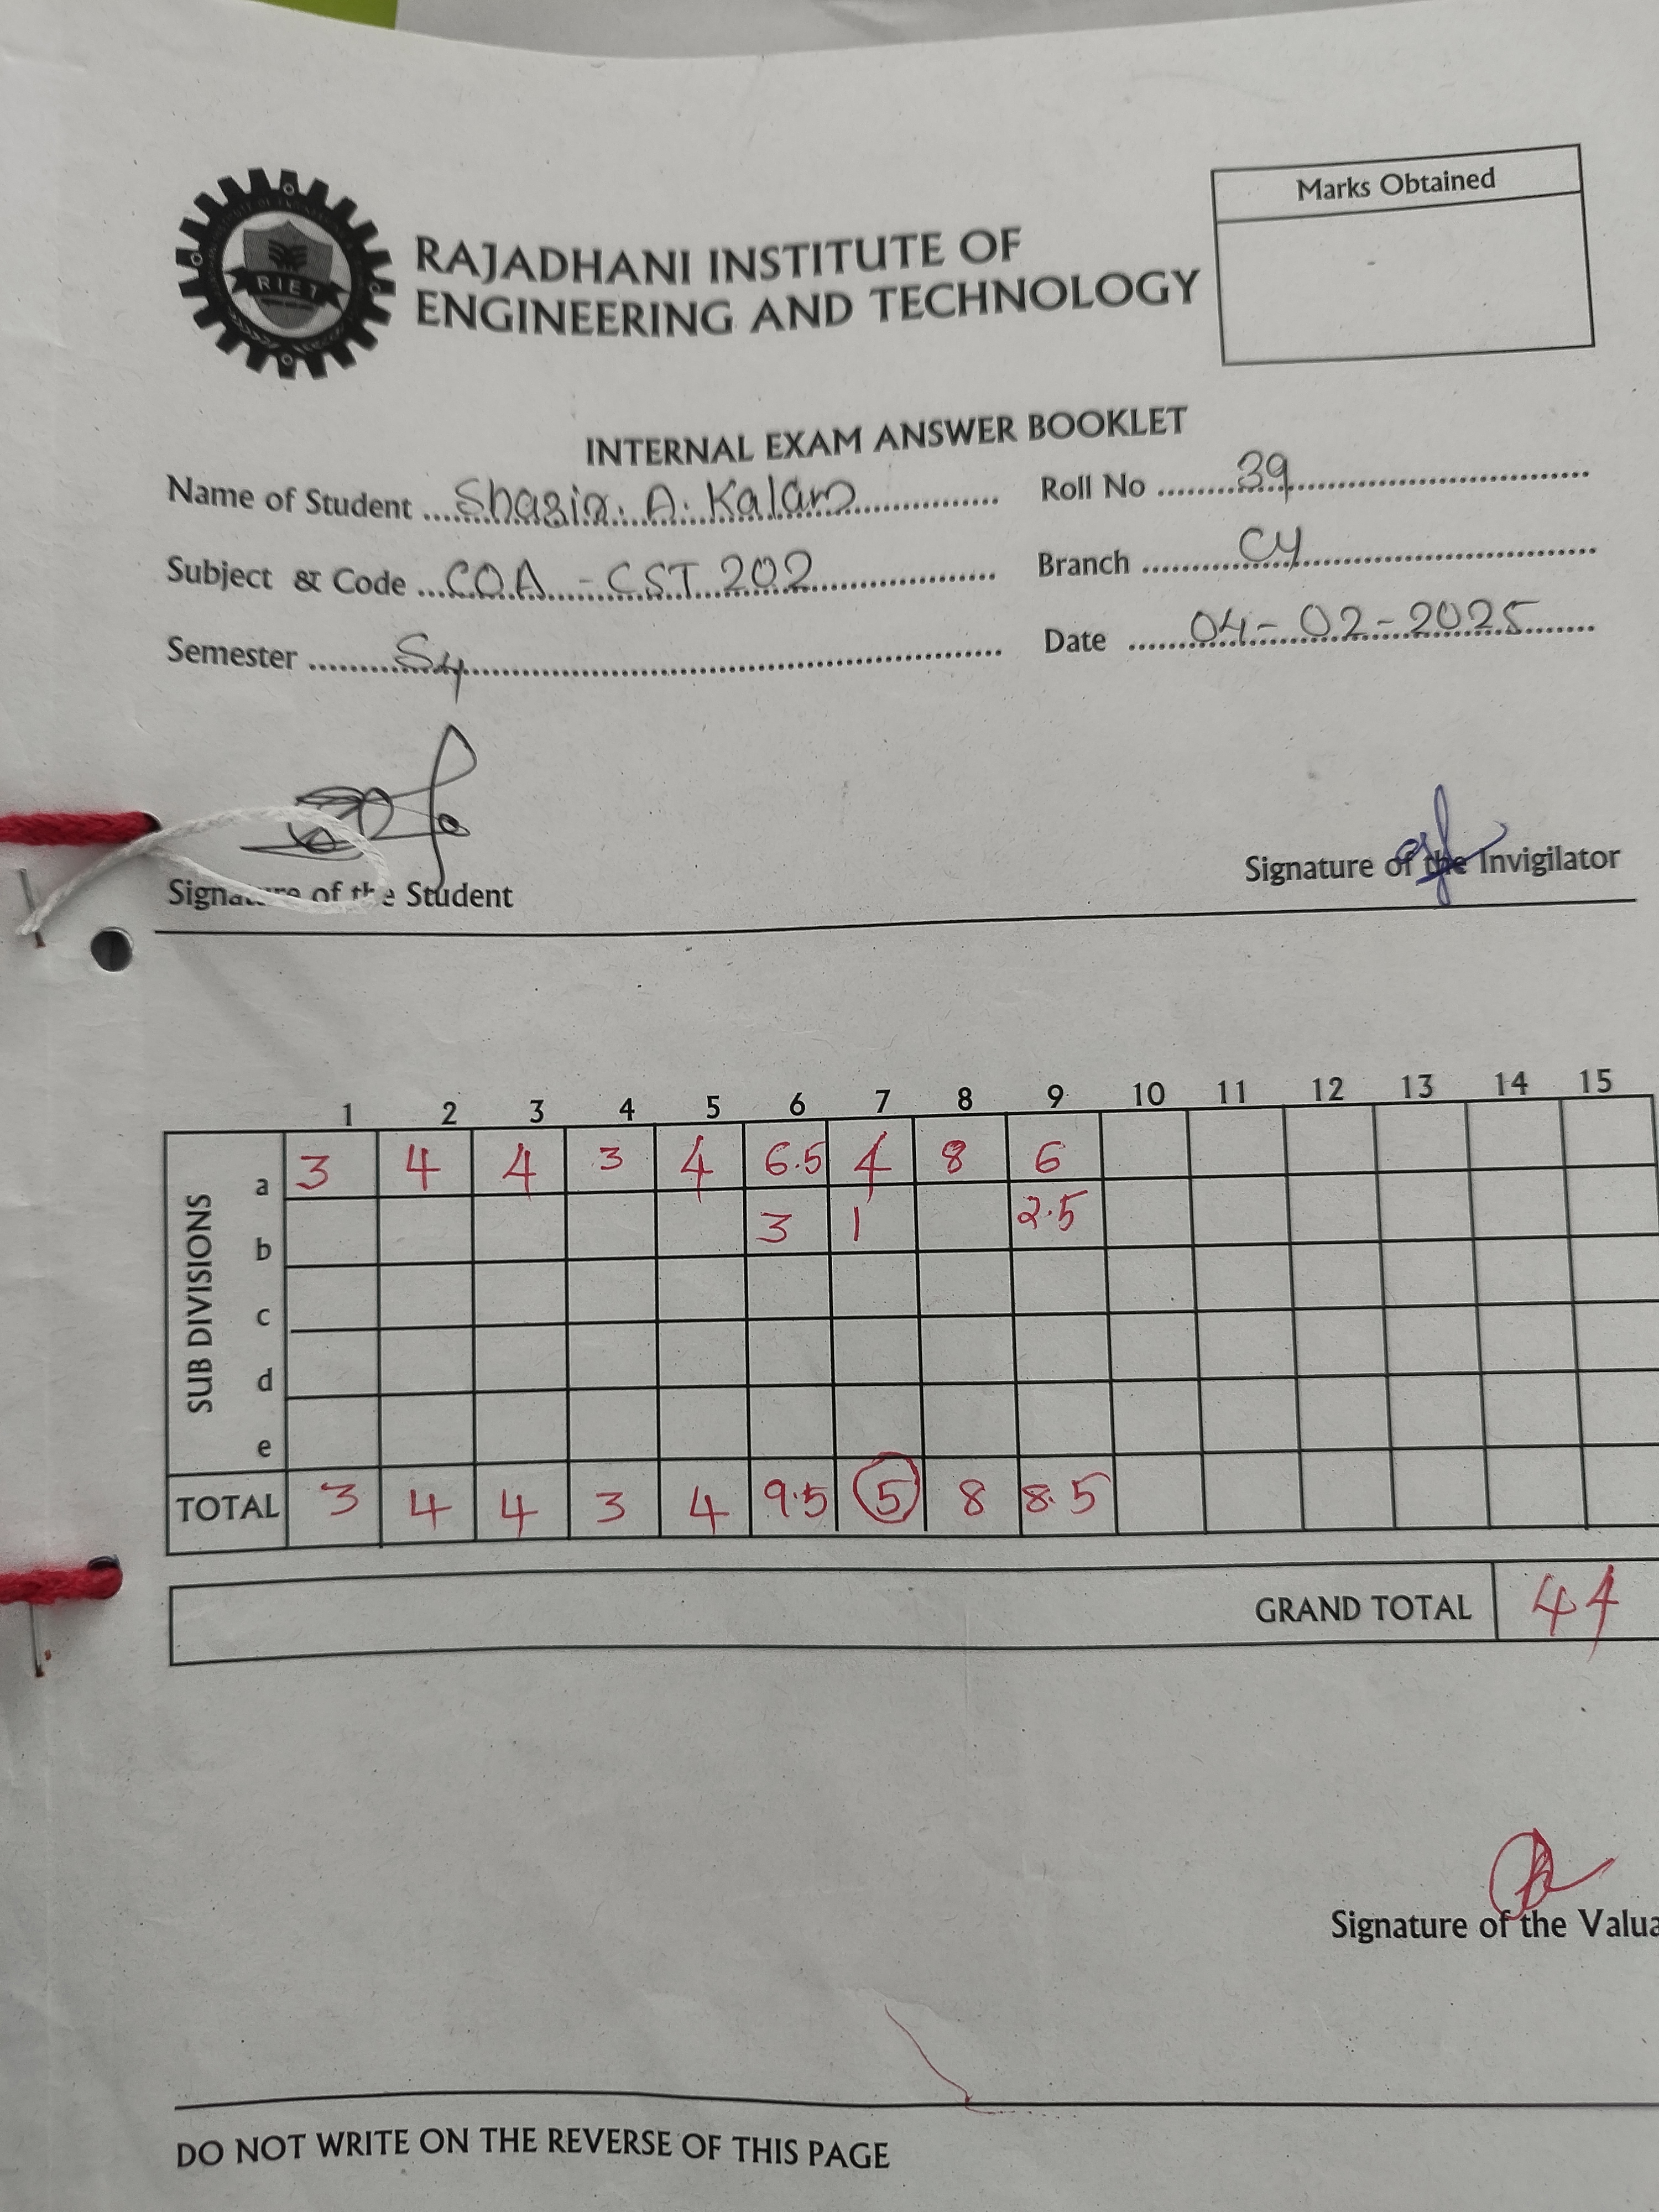 RIET
RAJADHANI INSTITUTE OF
ENGINEERING AND TECHNOLOGY
Marks Obtained
INTERNAL EXAM ANSWER BOOKLET
Name of Student A. Kalam Roll No 39
Subject & Code COA - CST 202 Branch CY
Semester S4 Date 04-02-2025
Signature of the Student Signature of the Invigilator
1 2 3 4 5 6 7 8 9 10 11 12 13 14 15
SUB DIVISIONS
a 3 4 4 3 4 6.5 4 8 6
b 3 1 2.5
c
d
e
TOTAL 3 4 4 3 4 9.5 5 8 8.5
GRAND TOTAL 44
Signature of the Valua
DO NOT WRITE ON THE REVERSE OF THIS PAGE